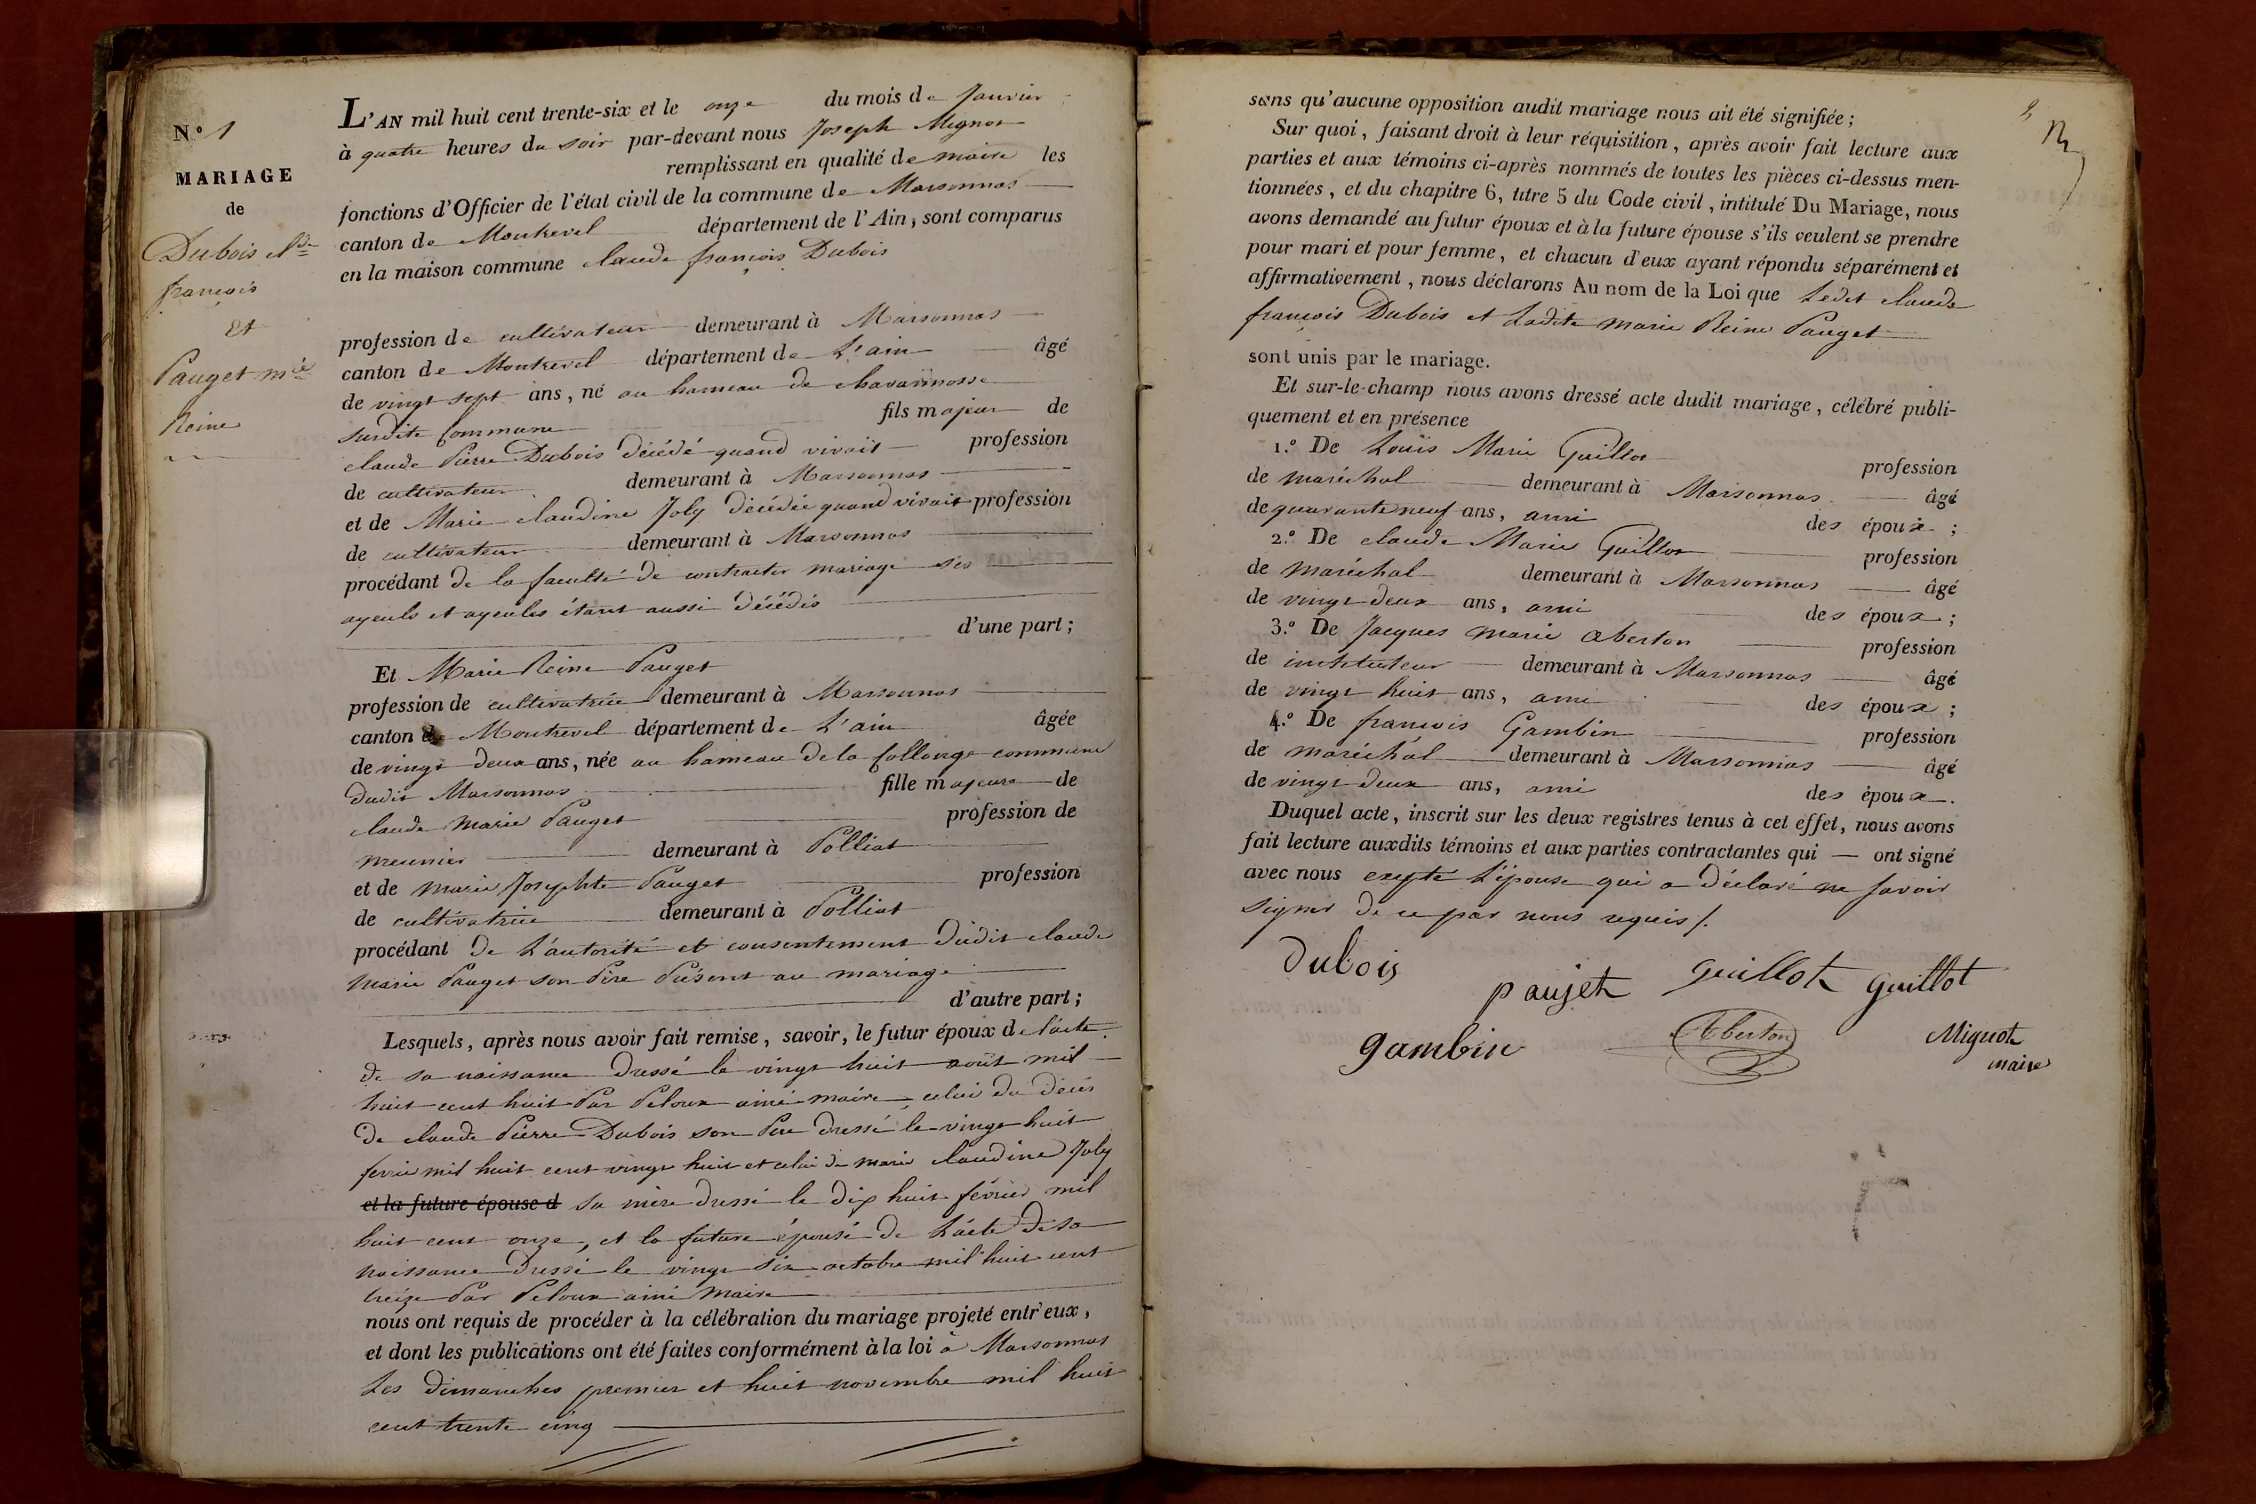 N.º 1
MARIAGE
de
Dubois Cde
françois
Et
Pauget mie
Reine
L'AN mil huit cent trente-six et le onze du mois de Janvier
à quatre heures du soir par-devant nous Joseph Mignot
remplissant en qualité de maire les
fonctions d'Officier de l'état civil de la commune de Marsonnas
canton de Montrevel département de l'Ain, sont comparus
en la maison commune claude françois Dubois
profession de cultivateur demeurant à Marsonnas
canton de Montrevel département de L'ain âgé
de vingt sept ans, né au hameau de chavannosse
susdite Commune fils majeur de
claude Pierre Dubois décédé quand vivait profession
de cultivateur demeurant à Marsonnas
et de Marie claudine Joly décédée quand vivait profession
de cultivateur demeurant à Marsonnas
procédant de la faculté de contracter mariage ses
ayeuls et ayeules étant aussi décédés
d'une part;
Et Marie Reine Pauget
profession de cultivatrice demeurant à Marsonnas
canton de Montrevel département de L'ain âgée
de vingt deux ans, née au hameau de la Collonge commune
dudit Marsonnas fille majeure de
claude Marie Pauget profession de
meunier demeurant à Polliat
et de marie Josephte Pauget profession
de cultivatrice demeurant à Polliat
procédant de L'autorité et consentement dudit claude
Marie Pauget son Père Présent au mariage
d'autre part;
Lesquels, après nous avoir fait remise, savoir, le futur époux de l'acte
de sa naissance dressé le vingt huit août mil
huit cent huit Par Peloux ainé maire, celui du décès
de claude Pierre Dubois son Père dressé le vingt huit
fevrie mil huit cent vingt huit et celui de marie claudine Joly
et la future épouse d sa mère dressé le dix huit février mil
huit cent onze, et la future épouse de L'acte de sa
naissance dressé le vingt six octobre mil huit cent
treize Par Peloux ainé Maire
nous ont requis de procéder à la célébration du mariage projeté entr'eux,
et dont les publications ont été faites conformément à la loi à Marsonnas
Les dimanches premier et huit novembre mil huit
cent trente cinq
sans qu'aucune opposition audit mariage nous ait été signifiée;
Sur quoi, faisant droit à leur réquisition, après avoir fait lecture aux
parties et aux témoins ci-après nommés de toutes les pièces ci-dessus men-
tionnées, et du chapitre 6, titre 5 du Code civil, intitulé Du Mariage, nous
avons demandé au futur époux et à la future épouse s'ils veulent se prendre
pour mari et pour femme, et chacun d'eux ayant répondu séparément et
affirmativement, nous déclarons Au nom de la Loi que Ledit claude
françois Dubois et Ladite Marie Reine Pauget
sont unis par le mariage.
Et sur-le-champ nous avons dressé acte dudit mariage, célébré publi-
quement et en présence
1.º De Louis Marie Guillot profession
de maréchal demeurant à Marsonnas âgé
de quarante neuf ans, ami des époux;
2.º De claude Marie Guillot profession
de maréchal demeurant à Marsonnas âgé
de vingt deux ans, ami des époux;
3.º De Jacques marie Oberton profession
de instituteur demeurant à Marsonnas âgé
de vingt huit ans, ami des époux;
4.º De françois Gambin profession
de maréchal demeurant à Marsonnas âgé
de vingt deux ans, ami des époux.
Duquel acte, inscrit sur les deux registres tenus à cet effet, nous avons
fait lecture auxdits témoins et aux parties contractantes qui — ont signé
avec nous exepté L'épouse qui a déclaré ne savoir
signer de ce par nous requis /.
Dubois
paujet guillot guillot
gambin Oberton Mignot
maire